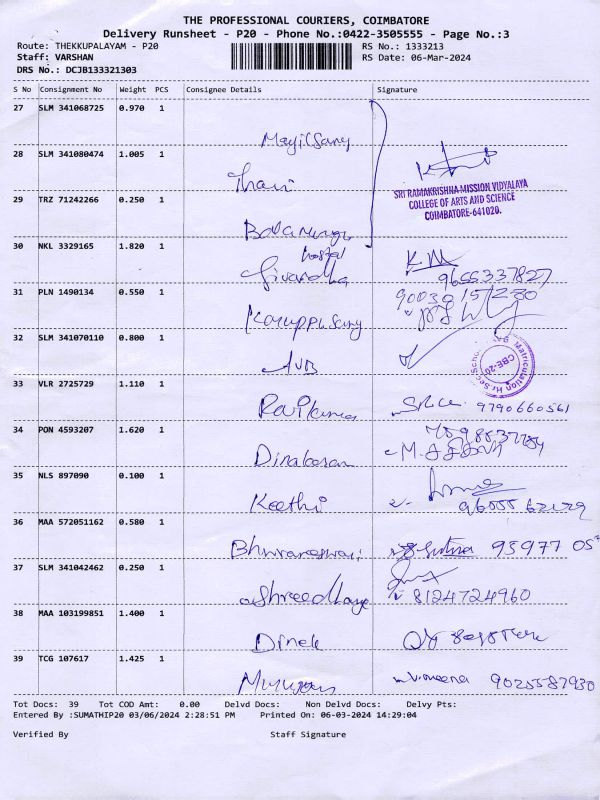 THE PROFESSIONAL COURIERS, COIMBATORE
Delivery Runsheet - P20 - Phone No.:0422-3505555 - Page No.:3
Route: THEKKUPALAYAM - P20 RS No.: 1333213
Staff: VARSHAN RS Date: 06-Mar-2024
DRS No.: DCJB133321303
S No Consignment No Weight PCS Consignee Details Signature
27 SLM 341068725 0.970 1
28 SLM 341080474 1.005 1
Thavi
SRI RAMAKRISHNA MISSION VIDYALAYA
COLLEGE OF ARTS AND SCIENCE
COIMBATORE-641020.
29 TRZ 71242266 0.250 1
30 NKL 3329165 1.820 1
hostel
KM
9655337827
31 PLN 1490134 0.550 1
Karuppusamy
32 SLM 341070110 0.800 1
AVB
Matriculation Hr.Sec.School
CBE-20
33 VLR 2725729 1.110 1
9790660561
34 PON 4593207 1.620 1
Dinakaran
35 NLS 897090 0.100 1
Keethi
36 MAA 572051162 0.580 1
Bhuvaneswari
95977 05
37 SLM 341042462 0.250 1
8124724960
38 MAA 103199851 1.400 1
39 TCG 107617 1.425 1
Murugan V.meena 9025587930
Tot Docs: 39 Tot COD Amt: 0.00 Delvd Docs: Non Delvd Docs: Delvy Pts:
Entered By :SUMATHIP20 03/06/2024 2:28:51 PM Printed On: 06-03-2024 14:29:04
Verified By Staff Signature